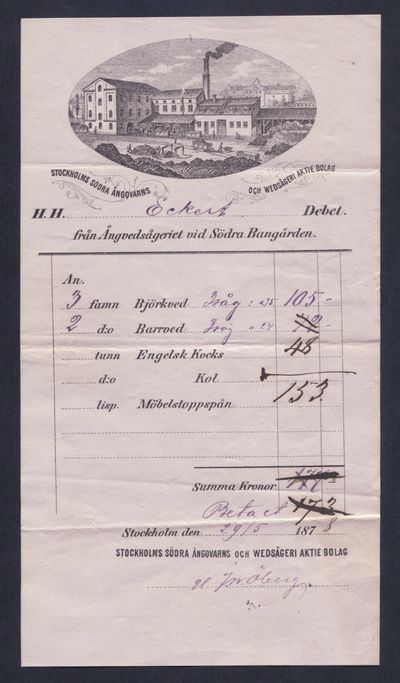 STOCKHOLMS SÖDRA ÅNGOVARNS OCH WEDSÅGERI AKTIE BOLAG
H. H. Eckert Debet.
från Ångvedsågeriet vid Södra Bangården.
An.
3 famn Björkved 2såg: a 35 105 -
2 d:o Barrved a 24
tunn Engelsk Kocks 48
d:o Kol
lisp. Möbelstoppspån 153
Summa Kronor
Betalt
Stockholm den 29/5 1878
STOCKHOLMS SÖDRA ÅNGOVARNS OCH WEDSÅGERI AKTIE BOLAG